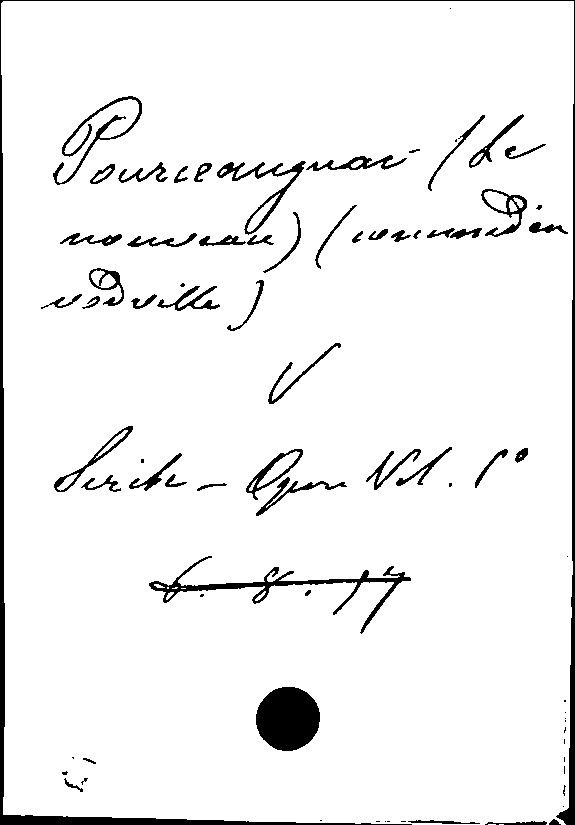 Pourceaugnac (Le
nouveau) (commedien
vodville)
V
Scribe - Opere Vol. 1º
6. 8. 17